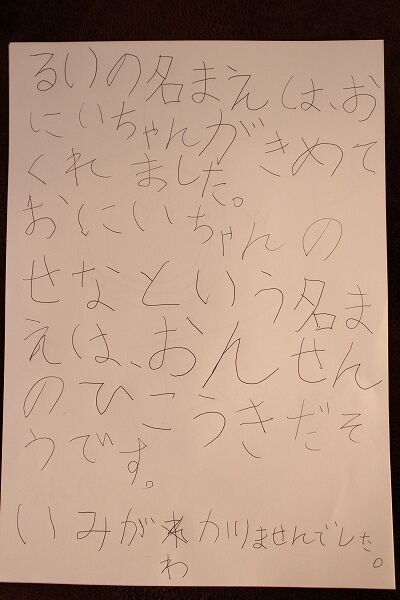 るいの名まえは、お
にいちゃんがきめて
くれました。
おにいちゃんの
せなという名ま
えは、おんせん
のひこうきだそ
うです。
いみがわかりませんでした。